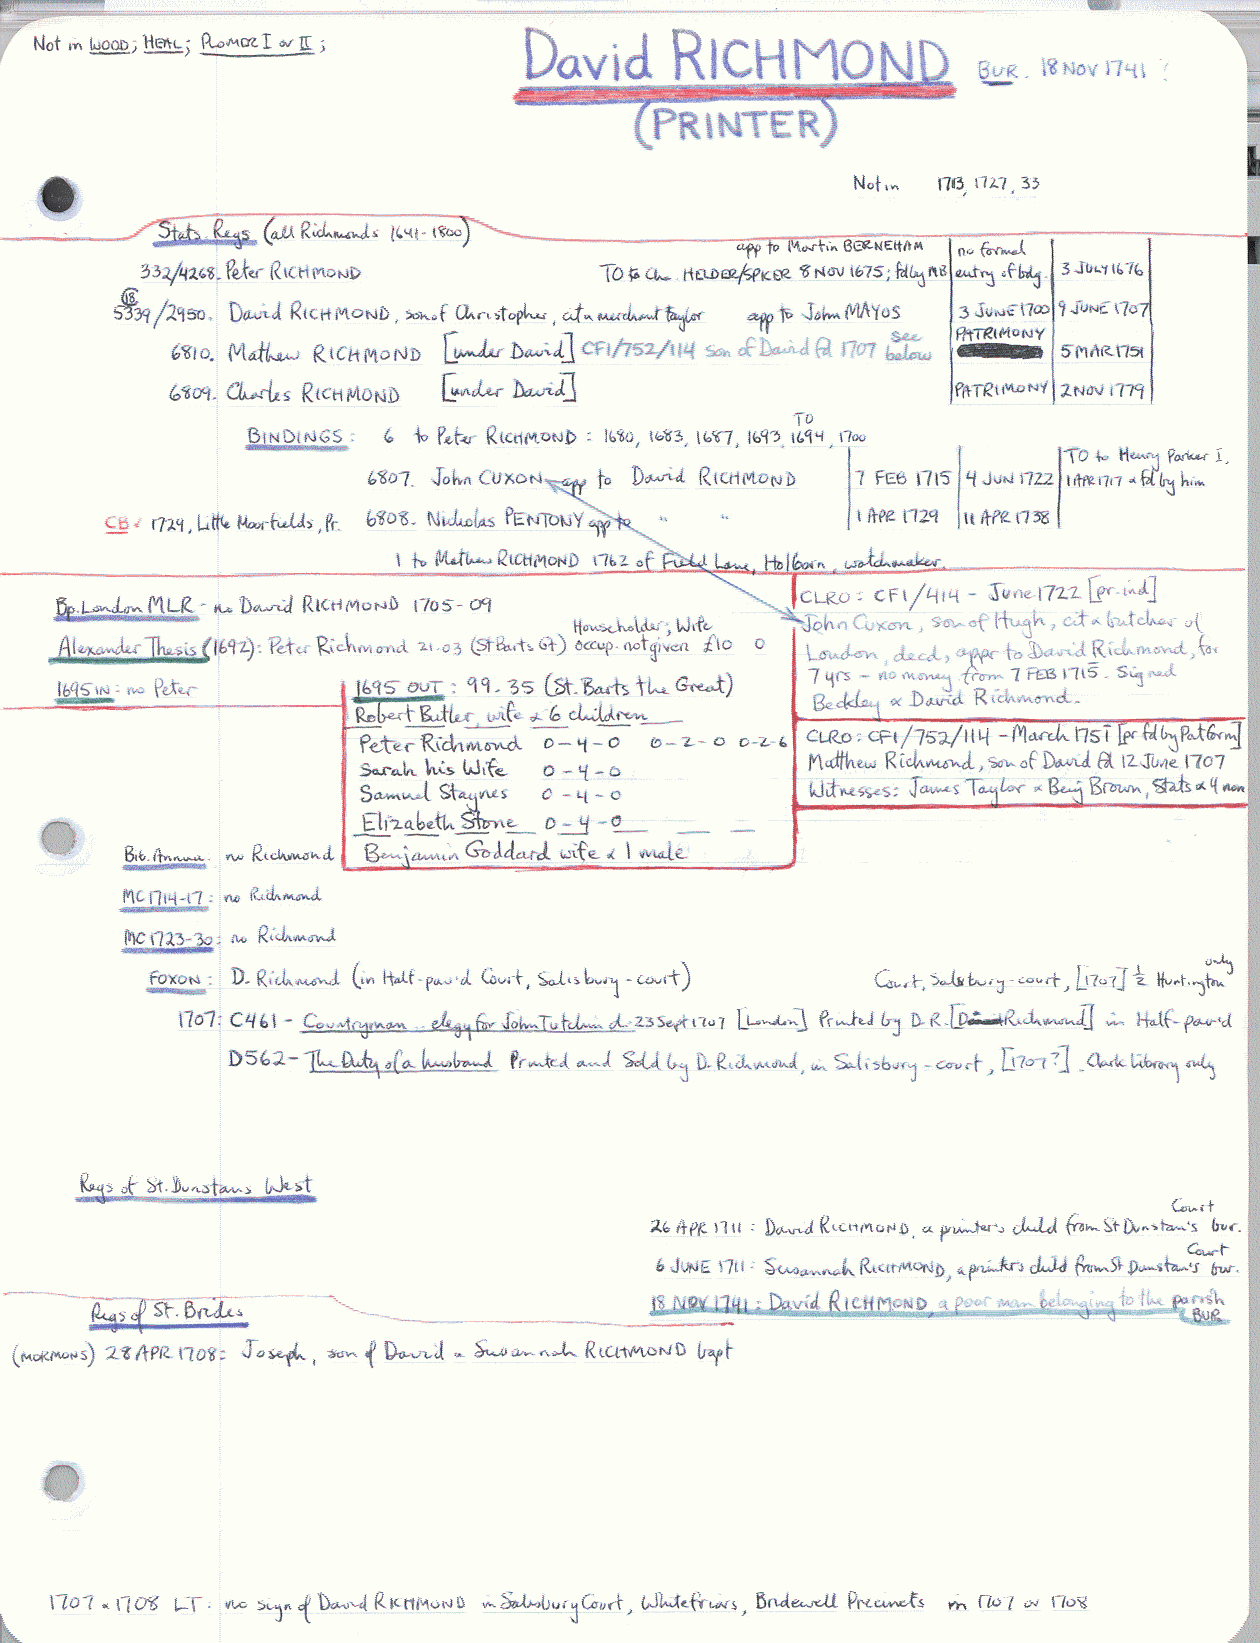 Not in WOOD; HEAL; PLOMER I or II;
David RICHMOND BUR. 18 NOV 1741 ?
(PRINTER)
Not in 1713, 1727, 33
Stats. Regs (all Richmonds 1641-1800)
app to Martin BERNEHAM no formal
332/4268. Peter RICHMOND TO to Chr. HELDER/SPICER 8 NOV 1675; fd by MB entry of bdg. 3 JULY 1676
18
5339/2950. David RICHMOND, son of Christopher, cit & merchant taylor app to John MAYOS 3 JUNE 1700 9 JUNE 1707
6810. Mathew RICHMOND [under David] CF1/752/114 son of David fd 1707 see below PATRIMONY 5 MAR 1751
6809. Charles RICHMOND [under David] PATRIMONY 2 NOV 1779
TO
BINDINGS: 6 to Peter RICHMOND: 1680, 1683, 1687, 1693, 1694, 1700
TO to Henry Parker I,
6807. John CUXON app to David RICHMOND 7 FEB 1715 4 JUN 1722 1 APR 1717 & fd by him
CB: 1729, Little Moorfields, Pr. 6808. Nicholas PENTONY app to " " 1 APR 1729 11 APR 1738
1 to Mathew RICHMOND 1762 of Field Lane, Holborn, watchmaker.
Bp. London MLR - no David RICHMOND 1705-09
Householder; Wife
Alexander Thesis (1692): Peter Richmond 21.03 (St Barts Gt) occup. not given £10 0
1695 IN: no Peter
1695 OUT: 99.35 (St. Barts the Great)
Robert Butler, wife & 6 children
Peter Richmond 0-4-0 0-2-0 0-2-6
Sarah his Wife 0-4-0
Samuel Staynes 0-4-0
Elizabeth Stone 0-4-0
Benjamin Goddard wife & 1 male
CLRO: CF1/414 - June 1722 [pr. ind]
John Cuxon, son of Hugh, cit & butcher of
London, decd, appr to David Richmond, for
7 yrs - no money from 7 FEB 1715. Signed
Beckley & David Richmond.
CLRO: CF1/752/114 - March 1751 [pr fd by Pat form]
Matthew Richmond, son of David fd 12 June 1707
Witnesses: James Taylor & Benj Brown, Stats & 4 non
Bib. Annua. no Richmond
MC 1714-17: no Richmond
MC 1723-30: no Richmond
FOXON: D. Richmond (in Half-pav'd Court, Salisbury-court) Court, Salisbury-court, [1707] ½ Huntington only
1707: C461 - Countryman .. elegy for John Tutchin d. 23 Sept 1707 [London] Printed by D.R. [Richmond] in Half-pav'd
D562 - The Duty of a husband Printed and Sold by D. Richmond, in Salisbury-court, [1707?]. Clark Library only
Regs of St. Dunstans West
Court
26 APR 1711: David RICHMOND, a printer's child from St Dunstan's bur.
Court
6 JUNE 1711: Susannah RICHMOND, a printer's child from St Dunstan's bur.
18 NOV 1741: David RICHMOND, a poor man belonging to the parish
BUR
Regs of St. Brides
(MORMONS) 28 APR 1708: Joseph, son of David & Susannah RICHMOND bapt
1707 & 1708 LT: no sign of David RICHMOND in Salisbury Court, Whitefriars, Bridewell Precincts in 1707 or 1708